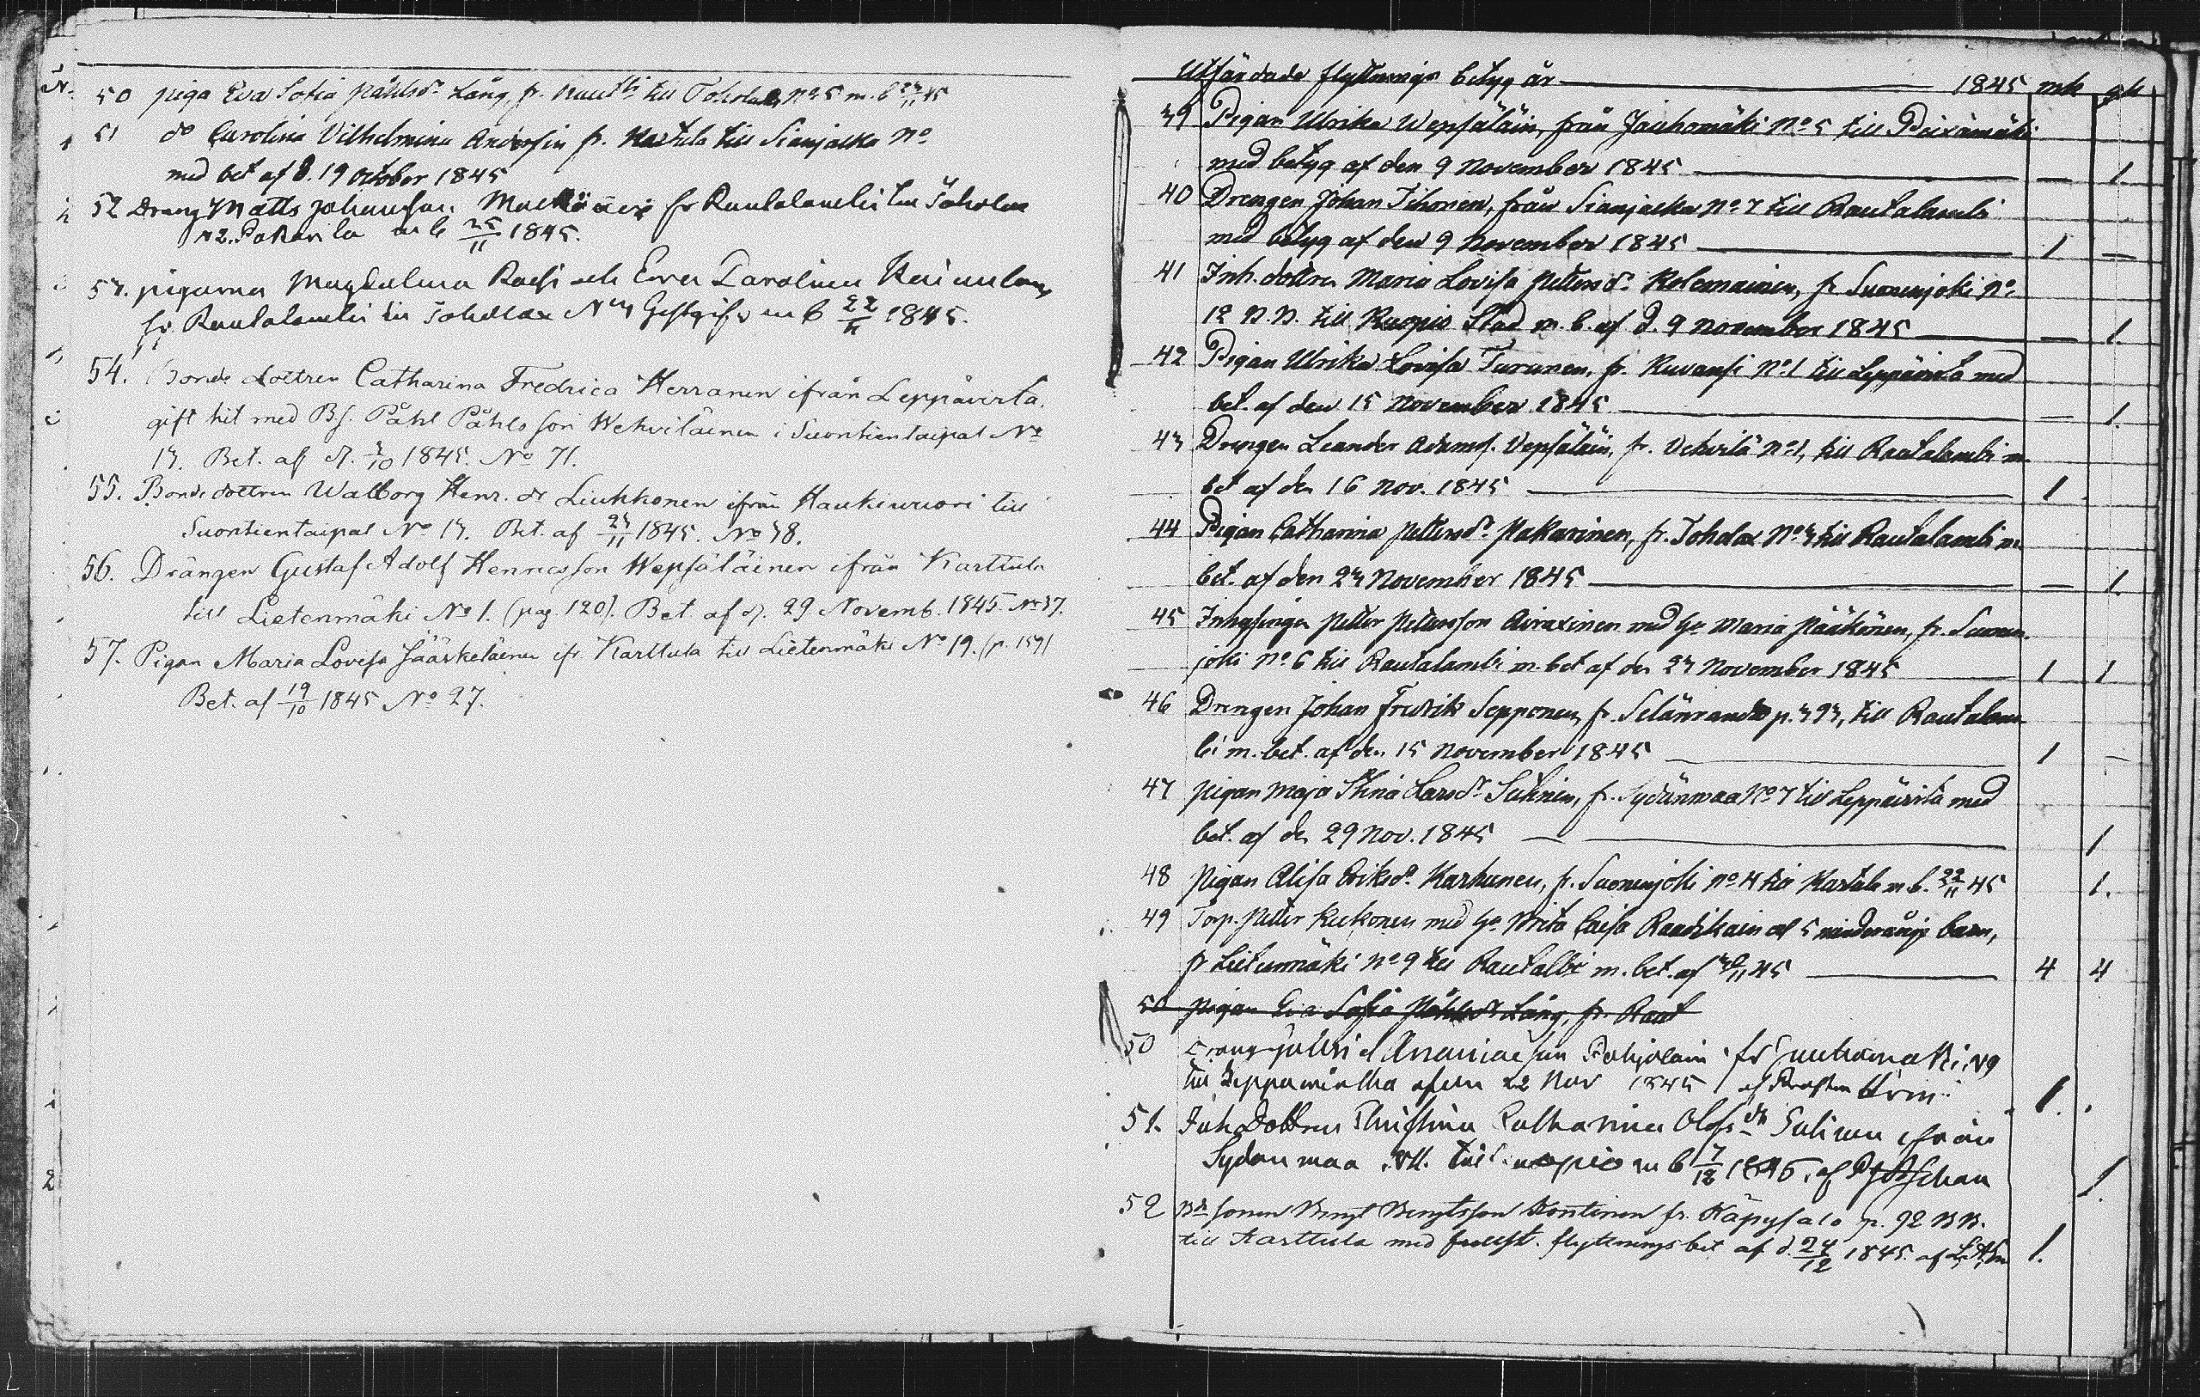 N.
50 piga Eva Sofia Påhlsdr Lång, fr. Rautbi till Toholax No 5 m. b. 23/11 45
51 do Carolina Vilhelmina Andersin fr. Karttula till Sianjalka No
med bet af d. 19 october 1845
52 Dräng Matts Johansson fr Rautalambi till Toholax
N 2. Pakarila m b 25/11 1845.
53. pigorna Magdalena Räsi och Eva Carolina
fr. Rautalambi till Toholax N 3 Gestgifv m b 22/11 1845.
54. Bonde dottren Catharina Fredrica Herranen ifrån Leppävirta.
gift hit med BS. Påhl Påhlsson Wehviläinen i Suontientaipal No
13. Bet. af d. 3/10 1845. No 71.
55. Bonde dottren Walborg Henr. dr Liukkonen ifrån Haukivuori till
Suontientaipal No 13. Bet. af 23/11 1845. No 38.
56. Drängen Gustaf Adolf Henricsson Wepsäläinen ifrån Karttula
till Lietenmäki No 1. (pag 120). Bet. af d. 29 Novemb. 1845. No 37.
57. Pigan Maria Lovisa Jääskeläinen ifr Karttula till Lietenmäki No 19. (p. 159)
Bet. af 19/10 1845 No 27.
Utfärdade flyttnings betyg år 1845 mk qk
39 Pigan Ulrika Wepsäläin, från Jauhomäki No 5 till Piexämäki
med betyg af den 9 November 1845 — 1.
40 Drengen Johan Tihonen, från Sianjalka No 7 till Rautalambi
med betyg af den 9 November 1845 1 —
41 Inh. dottren Maria Lovisa Pettersdr Kolemainen, fr Suonenjoki No
12 N.N. till Kuopio Stad m. b. af d. 9 november 1845 — 1.
42 Pigan Ulrika Lovisa Turunen, fr. Kuvansi No 1 till Leppävirta med
bet. af den 15 November 1845 — 1.
43 Drengen Leander Adamss. Vepsäläin, fr. Vehvilä No 1, till Rautalambi m
bet af den 16 Nov. 1845 1 .
44 Pigan Catharina Pettersdr Pakarinen, fr. Toholax No 3 till Rautalambi m
bet. af den 23 November 1845 — 1.
45 Inhysingen Petter Petersson Airaxinen med Ha Maria Pääkönen, fr. Suonen
joki No 6 till Rautalambi m. bet af den 23 November 1845 1 1
46 Drengen Johan Fredrik Sepponen, fr. Selänranda p. 393, till Rautalam
bi m. bet. af den 15 November 1845 1 —
47 pigan Maja Stina Larsdr Sutinen, fr. Sydänmaa No 7 till Leppävirta med
bet. af den 29 Nov. 1845 — 1
48 Pigan Alisa Eriksdr Karhunen, fr. Suonenjoki No 4 till Karttula m b. 22/11 45 1.
49 Torp. Petter Kukonen med Ha Brita Caisa Raadikain och 5 minderårige barn,
fr Lietenmäki No 9 till Rautalbi m. bet. af 30/11 45 4 4
50 pigan Eva Sofia Påhlsdr Lång, fr. Raut
50 Dräng Gabriel Ananiaesson Pohjolain fr Jauhomäki N 9
till Leppävirtha af den 22 Nov 1845 af Prosten 1. .
51. Inh Dottren Christina Catharina Olofsdr Sutinen ifrån
Sydänmaa till Kuopio m b 17/12 1845. af 1.
52 Bd sonen Bengt Bengtsson Kontinen fr. Käpysalo p. 92 BB.
till Karttula med fullst. flyttningsbet af d. 24/12 1845. af 1.